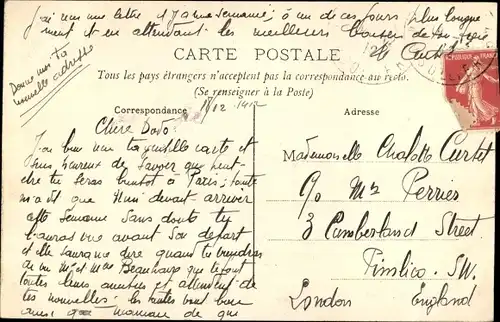 j'ai reçu une lettre il y a une semaine, à un de ces jours plus longue
ment et en attendant les meilleurs baisers de ton frère
Curtet
Donne moi ta
nouvelle adresse
CARTE POSTALE
Tous les pays étrangers n'acceptent pas la correspondance au recto.
(Se renseigner à la Poste)
Correspondance
Adresse
Chère Dodo:
J'ai bien reçu ta gentille carte et
suis heureux de savoir que peut-
être tu seras bientôt à Paris; tante
m'a dit que Mimi devait arriver
cette semaine sans doute tu
l'auras vue avant son départ
et elle saura que dire quand tu viendras
j'ai vu Mr et Mme Beauchamp qui te font
toutes leurs amitiés et attendent de
tes nouvelles: les tantes vont bien
aussi que maman de qui
Mademoiselle Charlotte Curtet
c/o Mrs Perrier
3 Cumberland Street
Pimlico. SW.
London England